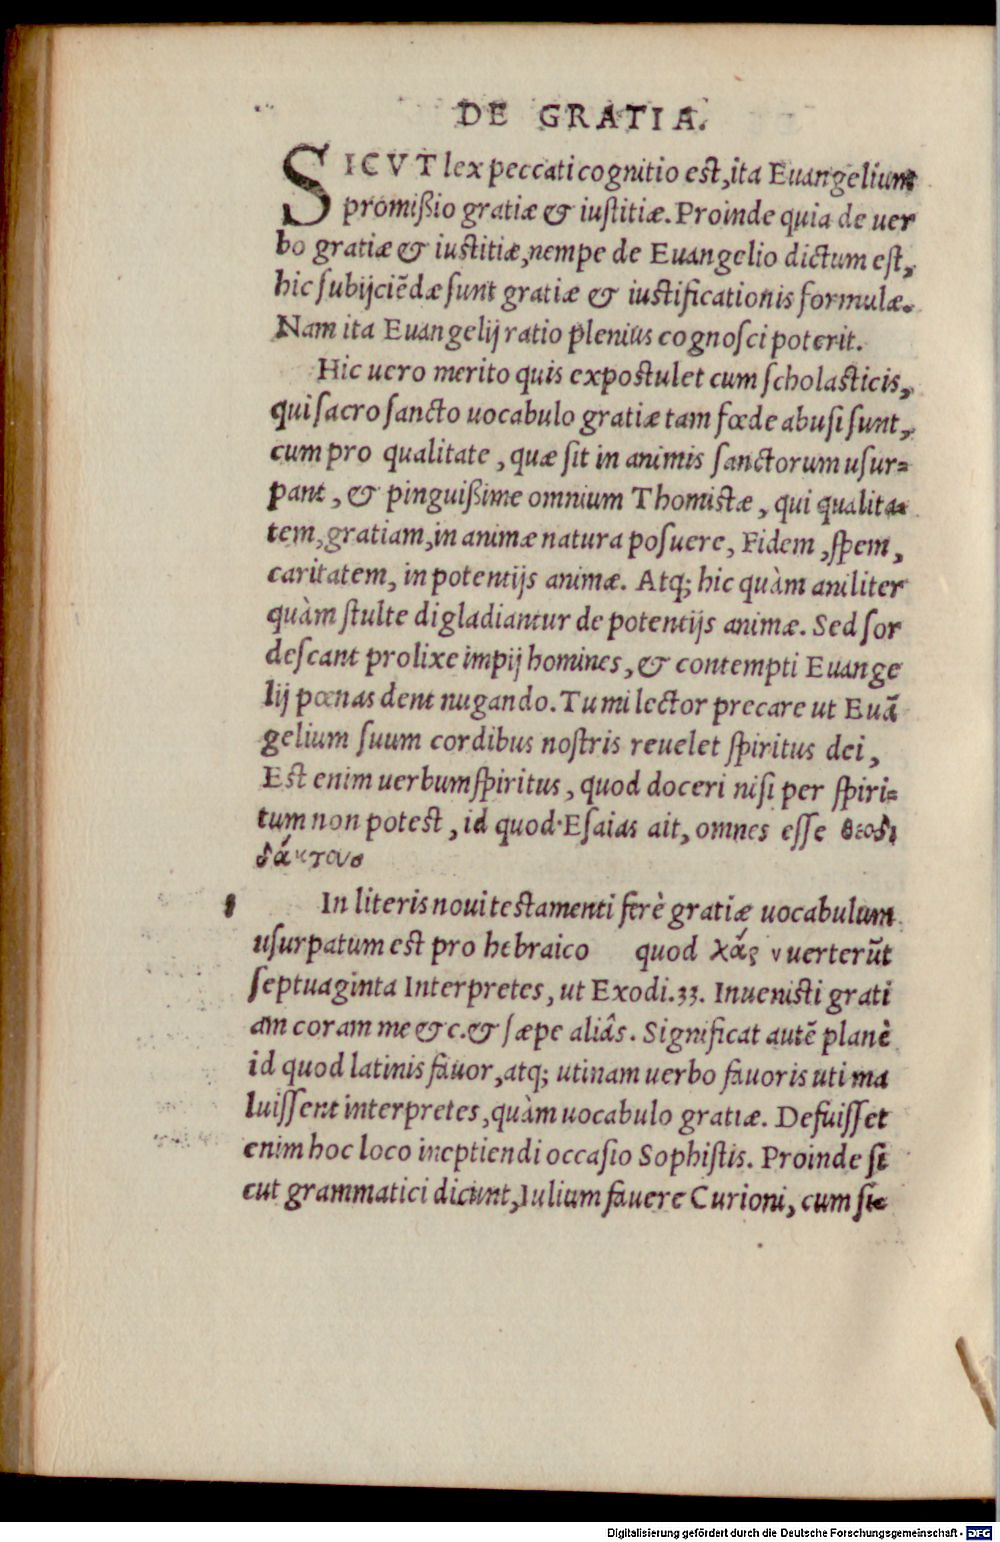 DE GRATIA.
SICVT lex peccati cognitio est, ita Euangelium
promißio gratiæ & iustitiæ. Proinde quia de uer
bo gratiæ & iustitiæ, nempe de Euangelio dictum est,
hic subijciẽdæ sunt gratiæ & iustificationis formulæ.
Nam ita Euangelij ratio plenius cognosci poterit.
Hic uero merito quis expostulet cum scholasticis,
qui sacro sancto uocabulo gratiæ tam fœde abusi sunt,
cum pro qualitate, quæ sit in animis sanctorum usur=
pant, & pinguißime omnium Thomistæ, qui qualita=
tem, gratiam, in animæ natura posuere, Fidem, spem,
caritatem, in potentijs animæ. Atq; hic quàm aniliter
quàm stulte digladiantur de potentijs animæ. Sed sor
descant prolixe impij homines, & contempti Euange
lij pœnas dent nugando. Tu mi lector precare ut Euã
gelium suum cordibus nostris reuelet spiritus dei,
Est enim uerbum spiritus, quod doceri nisi per spiri=
tum non potest, id quod Esaias ait, omnes esse θεοδι
δάκτους
In literis noui testamenti ferè gratiæ uocabulum
usurpatum est pro hebraico quod χάς ν uerterũt
septuaginta Interpretes, ut Exodi.33. Inuenisti grati
am coram me &c. & sæpe aliâs. Significat autẽ planè
id quod latinis fauor, atq; utinam uerbo fauoris uti ma
luissent interpretes, quàm uocabulo gratiæ. Defuisset
enim hoc loco ineptiendi occasio Sophistis. Proinde si
cut grammatici dicunt, Iulium fauere Curioni, cum sie
Digitalisierung gefördert durch die Deutsche Forschungsgemeinschaft - DFG